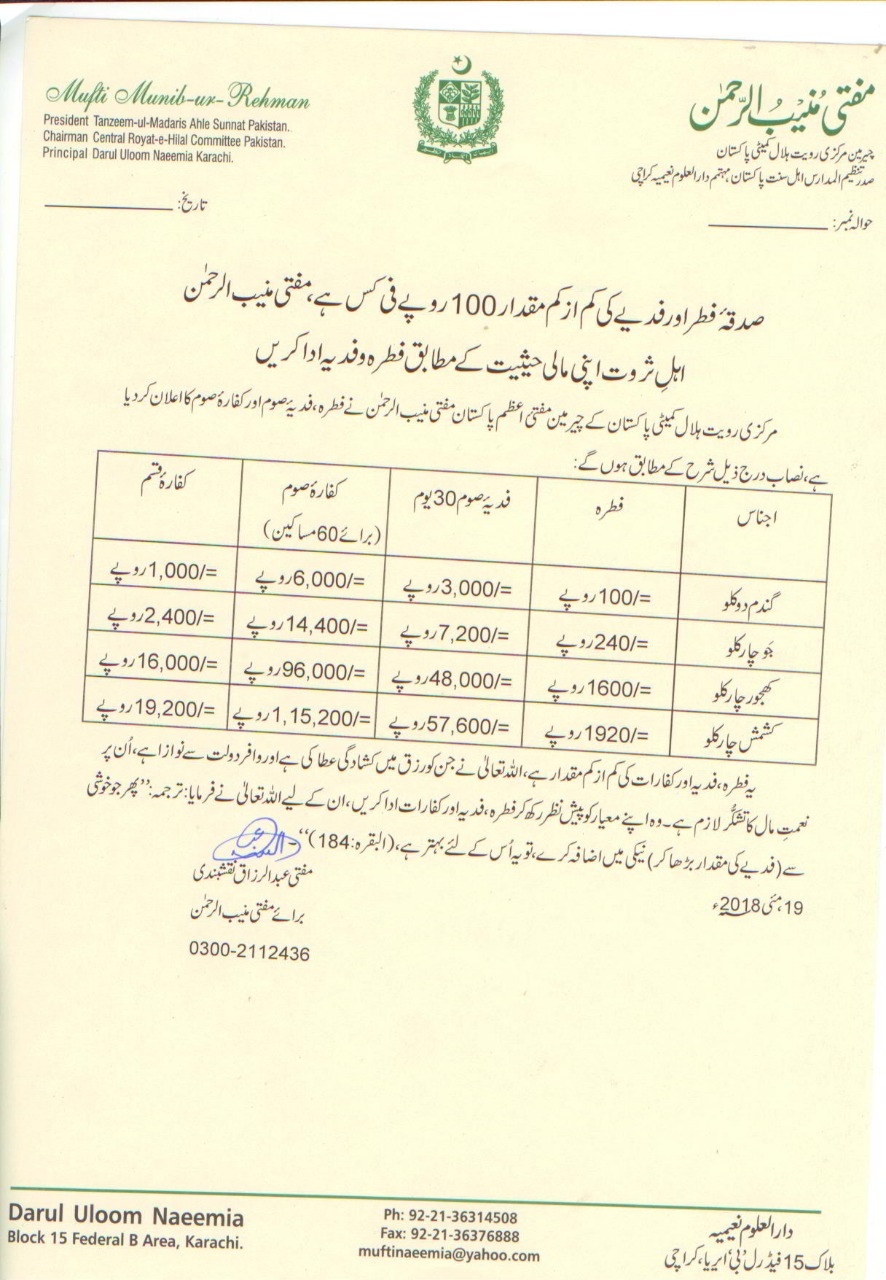 Mufti Munib-ur-Rehman
President Tanzeem-ul-Madaris Ahle Sunnat Pakistan.
Chairman Central Royat-e-Hilal Committee Pakistan.
Principal Darul Uloom Naeemia Karachi.
مفتی مُنیبُ الرّحمٰن
چیرمین مرکزی رویت ہلال کمیٹی پاکستان
صدر تنظیم المدارس اہل سنت پاکستان، مہتمم دار العلوم نعیمیہ کراچی
حوالہ نمبر:
تاریخ:
صدقۂ فطر اور فدیے کی کم از کم مقدار 100 روپے فی کس ہے، مفتی منیب الرحمٰن
اہلِ ثروت اپنی مالی حیثیت کے مطابق فطرہ و فدیہ ادا کریں
مرکزی رویت ہلال کمیٹی پاکستان کے چیرمین مفتیٔ اعظم پاکستان مفتی منیب الرحمٰن نے فطرہ، فدیۂ صوم اور کفارۂ صوم کا اعلان کر دیا
ہے، نصاب درج ذیل شرح کے مطابق ہوں گے:
اجناس فطرہ فدیۂ صوم 30 یوم کفارۂ صوم کفارۂ قسم
(برائے 60 مساکین)
گندم دو کلو 100/= روپے 3,000/= روپے 6,000/= روپے 1,000/= روپے
جَو چار کلو 240/= روپے 7,200/= روپے 14,400/= روپے 2,400/= روپے
کھجور چار کلو 1600/= روپے 48,000/= روپے 96,000/= روپے 16,000/= روپے
کشمش چار کلو 1920/= روپے 57,600/= روپے 1,15,200/= روپے 19,200/= روپے
یہ فطرہ، فدیہ اور کفارات کی کم از کم مقدار ہے، اللہ تعالیٰ نے جن کو رزق میں کشادگی عطا کی ہے اور وافر دولت سے نوازا ہے، اُن پر
نعمتِ مال کا تشکُّر لازم ہے۔ وہ اپنے معیار کو پیش نظر رکھ کر فطرہ، فدیہ اور کفارات ادا کریں، ان کے لیے اللہ تعالیٰ نے فرمایا: ترجمہ: ’’پھر جو خوشی
سے (فدیے کی مقدار بڑھا کر) نیکی میں اضافہ کرے، تو یہ اُس کے لئے بہتر ہے، (البقرہ:184)‘‘۔
مفتی عبد الرزاق نقشبندی
19 مئی 2018ء
برائے مفتی منیب الرحمٰن
0300-2112436
Darul Uloom Naeemia
Block 15 Federal B Area, Karachi.
Ph: 92-21-36314508
Fax: 92-21-36376888
muftinaeemia@yahoo.com
دار العلوم نعیمیہ
بلاک 15 فیڈرل ’بی‘ ایریا، کراچی